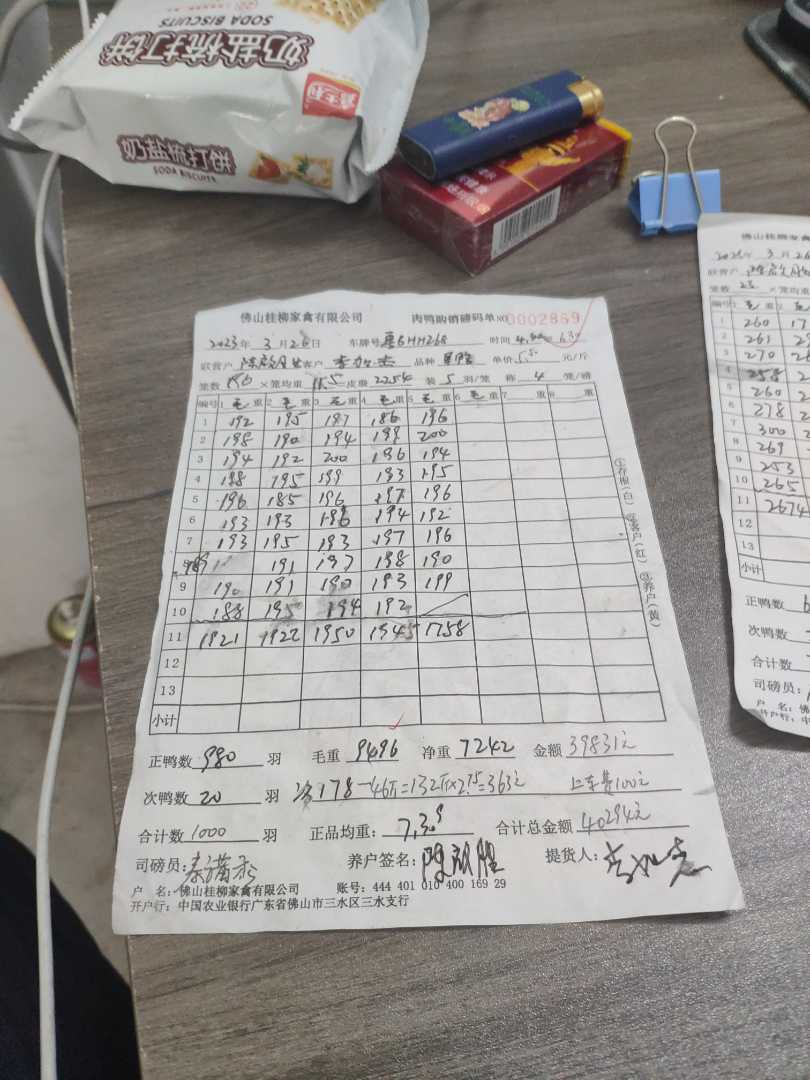 奶盐梳打饼
SODA BISCUITS
鑫士利
奶盐梳打饼
SODA BISCUITS
佛山桂柳家禽有限公司 肉鸭购销磅码单 NO 0002889
2023年3月26日 车牌号 时间 6.30
联营户 客户 品种 单价5.5元/斤
笼数196 ×笼均重11.5 皮磅2254 装5羽/笼 称4笼/磅
编号 1毛重 2毛重 3毛重 4毛重 5毛重 6毛重 7 重 8 重
1 192 195 197 186 196
2 198 190 194 199 200
3 194 192 200 196 194
4 198 195 199 193 195
5 196 185 196 197 196
6 193 193 196 194 192
7 193 195 193 197 196
191 197 198 190
9 190 191 190 193 199
10 188 195 194 192
11 1921 1922 1950 1945 1758
12
13
小计
①存根(白) ②客户(红) ③养户(黄)
正鸭数 980 羽 毛重 9496 净重 7242 金额 39831元
次鸭数 20 羽 178-46斤=132斤×2.75=363元 上车费100元
合计数 1000 羽 正品均重: 7.39 合计总金额 40294元
司磅员: 养户签名: 提货人:
户 名: 佛山桂柳家禽有限公司 账号: 444 401 010 400 169 29
开户行: 中国农业银行广东省佛山市三水区三水支行
佛山桂柳家禽
3月26
联营户
笼数 ×笼均重
1 260
2 261
3 270
4 258
5 260
6 278
7 300
8 269
9 253
10 265
11 2674
12
13
小计
正鸭数
次鸭数
合计数
司磅员:
户 名:
开户行: